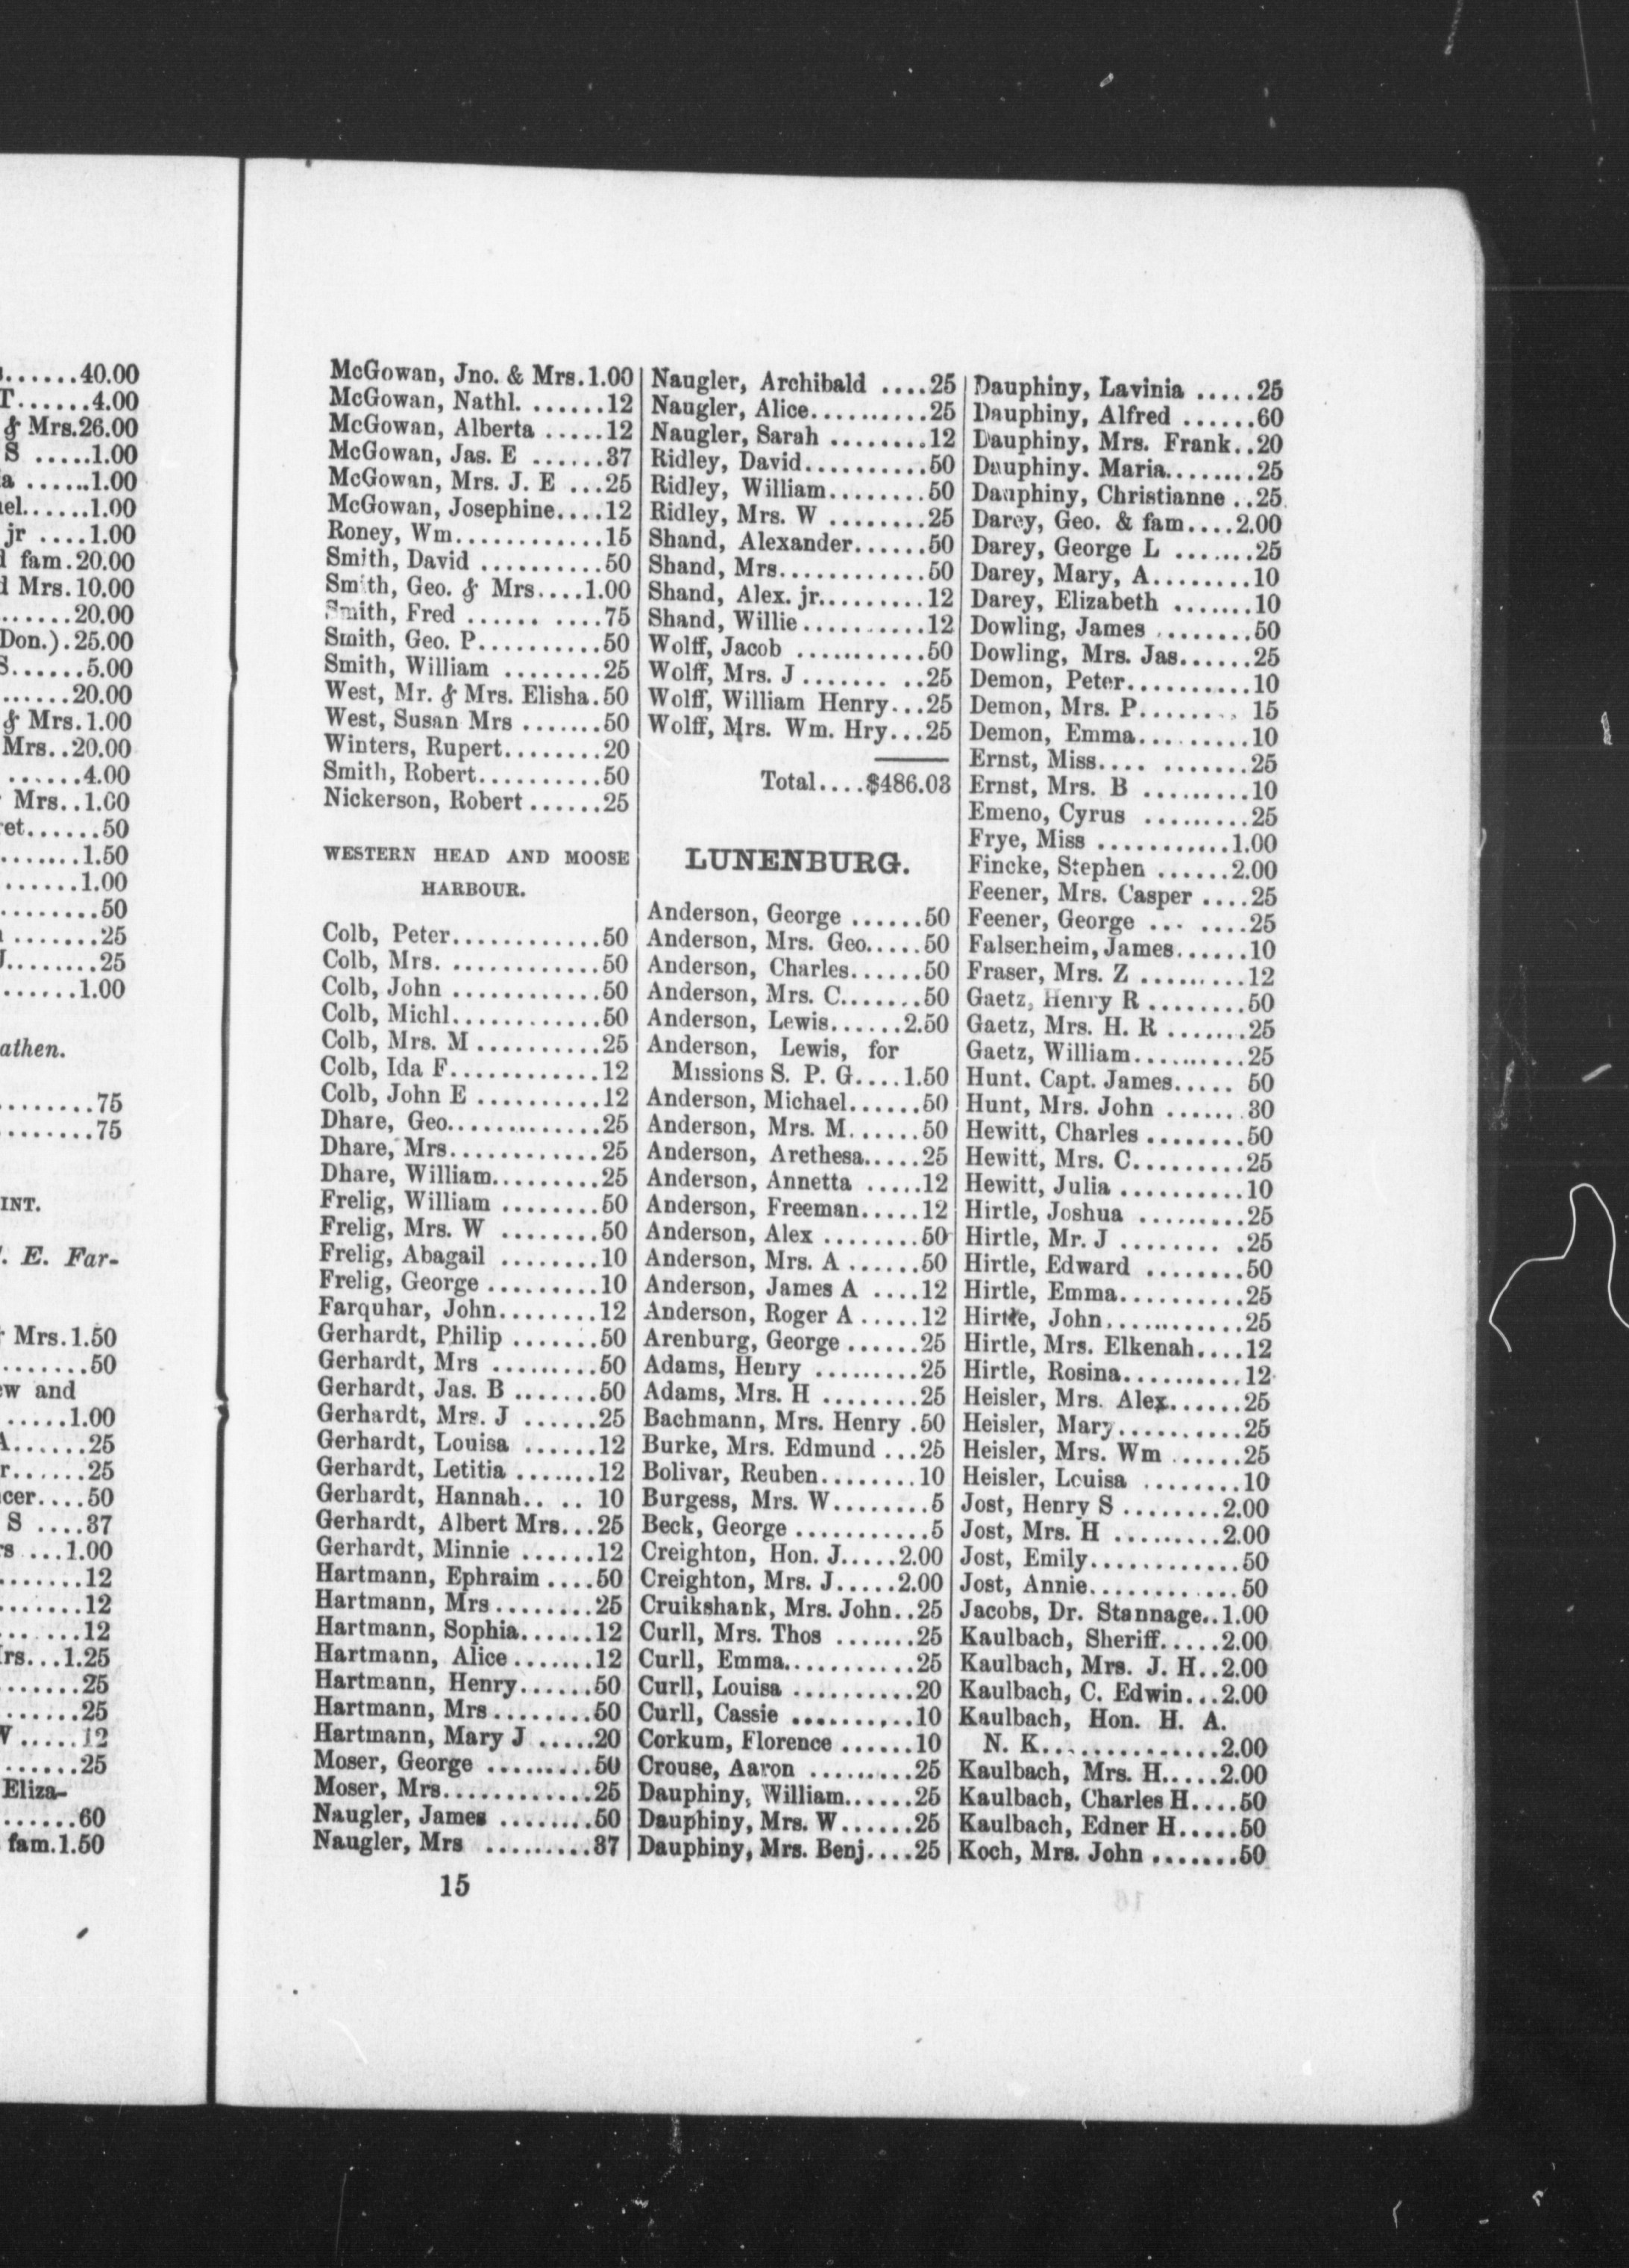 s......40.00
T......4.00
& Mrs.26.00
S .....1.00
a ......1.00
el......1.00
jr ....1.00
d fam.20.00
d Mrs.10.00
.......20.00
Don.).25.00
S......5.00
.......20.00
& Mrs.1.00
Mrs..20.00
.......4.00
Mrs..1.00
ret......50
.......1.50
.......1.00
.........50
........25
J........25
.......1.00
athen.
.........75
.........75
INT.
. E. Far-
Mrs.1.50
........50
ew and
.....1.00
A......25
r......25
cer....50
S ....37
rs ...1.00
........12
........12
........12
Irs...1.25
........25
.......25
V.....12
.......25
Eliza-
.......60
fam.1.50
McGowan, Jno. & Mrs.1.00
McGowan, Nathl. .......12
McGowan, Alberta .....12
McGowan, Jas. E ......37
McGowan, Mrs. J. E ...25
McGowan, Josephine....12
Roney, Wm............15
Smith, David ..........50
Smith, Geo. & Mrs....1.00
Smith, Fred ...... ....75
Smith, Geo. P..........50
Smith, William ........25
West, Mr. & Mrs. Elisha.50
West, Susan Mrs .......50
Winters, Rupert........20
Smith, Robert..........50
Nickerson, Robert ......25
WESTERN HEAD AND MOOSE
HARBOUR.
Colb, Peter............50
Colb, Mrs. ............50
Colb, John ............50
Colb, Michl............50
Colb, Mrs. M ..........25
Colb, Ida F............12
Colb, John E ..........12
Dhare, Geo.............25
Dhare, Mrs............25
Dhare, William.........25
Frelig, William ........50
Frelig, Mrs. W ........50
Frelig, Abagail ........10
Frelig, George .........10
Farquhar, John........12
Gerhardt, Philip .......50
Gerhardt, Mrs .........50
Gerhardt, Jas. B .......50
Gerhardt, Mrs. J ......25
Gerhardt, Louisa ......12
Gerhardt, Letitia .......12
Gerhardt, Hannah.. .. 10
Gerhardt, Albert Mrs...25
Gerhardt, Minnie ......12
Hartmann, Ephraim ....50
Hartmann, Mrs ........25
Hartmann, Sophia......12
Hartmann, Alice .......12
Hartmann, Henry......50
Hartmann, Mrs ........50
Hartmann, Mary J .....20
Moser, George .........50
Moser, Mrs............25
Naugler, James ........50
Naugler, Mrs .........37
15
Naugler, Archibald ....25
Naugler, Alice..........25
Naugler, Sarah ........12
Ridley, David..........50
Ridley, William........50
Ridley, Mrs. W ........25
Shand, Alexander......50
Shand, Mrs............50
Shand, Alex. jr.........12
Shand, Willie ..........12
Wolff, Jacob ...........50
Wolff, Mrs. J ....... ..25
Wolff, William Henry...25
Wolff, Mrs. Wm. Hry...25
Total....$486.03
LUNENBURG.
Anderson, George ......50
Anderson, Mrs. Geo.....50
Anderson, Charles......50
Anderson, Mrs. C.......50
Anderson, Lewis......2.50
Anderson, Lewis, for
Missions S. P. G....1.50
Anderson, Michael......50
Anderson, Mrs. M......50
Anderson, Arethesa.....25
Anderson, Annetta .....12
Anderson, Freeman.....12
Anderson, Alex ........50
Anderson, Mrs. A ......50
Anderson, James A ....12
Anderson, Roger A .....12
Arenburg, George ......25
Adams, Henry .........25
Adams, Mrs. H ........25
Bachmann, Mrs. Henry .50
Burke, Mrs. Edmund ...25
Bolivar, Reuben........10
Burgess, Mrs. W........5
Beck, George ...........5
Creighton, Hon. J.....2.00
Creighton, Mrs. J.....2.00
Cruikshank, Mrs. John..25
Curll, Mrs. Thos .......25
Curll, Emma...........25
Curll, Louisa ..........20
Curll, Cassie ..........10
Corkum, Florence ......10
Crouse, Aaron .........25
Dauphiny, William......25
Dauphiny, Mrs. W......25
Dauphiny, Mrs. Benj....25
Dauphiny, Lavinia .....25
Dauphiny, Alfred ......60
Dauphiny, Mrs. Frank..20
Dauphiny. Maria........25
Dauphiny, Christianne ..25
Darey, Geo. & fam....2.00
Darey, George L .......25
Darey, Mary, A........10
Darey, Elizabeth .......10
Dowling, James ........50
Dowling, Mrs. Jas......25
Demon, Peter..........10
Demon, Mrs. P........ 15
Demon, Emma.........10
Ernst, Miss.... .......25
Ernst, Mrs. B .........10
Emeno, Cyrus .........25
Frye, Miss ...........1.00
Fincke, Stephen ......2.00
Feener, Mrs. Casper ....25
Feener, George ... ....25
Falsenheim, James......10
Fraser, Mrs. Z .........12
Gaetz, Henry R ........50
Gaetz, Mrs. H. R .......25
Gaetz, William.........25
Hunt. Capt. James..... 50
Hunt, Mrs. John ...... 30
Hewitt, Charles ........50
Hewitt, Mrs. C.........25
Hewitt, Julia ..........10
Hirtle, Joshua .........25
Hirtle, Mr. J ........ .25
Hirtle, Edward ........50
Hirtle, Emma..........25
Hirtle, John............25
Hirtle, Mrs. Elkenah....12
Hirtle, Rosina..........12
Heisler, Mrs. Alex......25
Heisler, Mary..........25
Heisler, Mrs. Wm ......25
Heisler, Louisa ........10
Jost, Henry S ........2.00
Jost, Mrs. H .........2.00
Jost, Emily............50
Jost, Annie............50
Jacobs, Dr. Stannage..1.00
Kaulbach, Sheriff.....2.00
Kaulbach, Mrs. J. H..2.00
Kaulbach, C. Edwin...2.00
Kaulbach, Hon. H. A.
N. K...............2.00
Kaulbach, Mrs. H.....2.00
Kaulbach, Charles H....50
Kaulbach, Edner H.....50
Koch, Mrs. John .......50